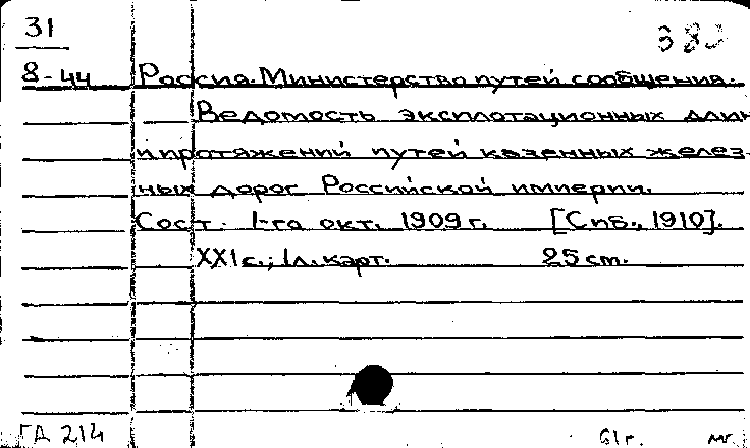 31
8-44 Россия. Министерство путей сообщения.
Ведомость эксплотационных длин
и протяжений путей казенных желез-
ных дорог Российской империи.
Сост. 1-го окт. 1909 г. [Спб., 1910].
XXI с.; 1 л. карт. 25 cm.
ГА 214 61 г.